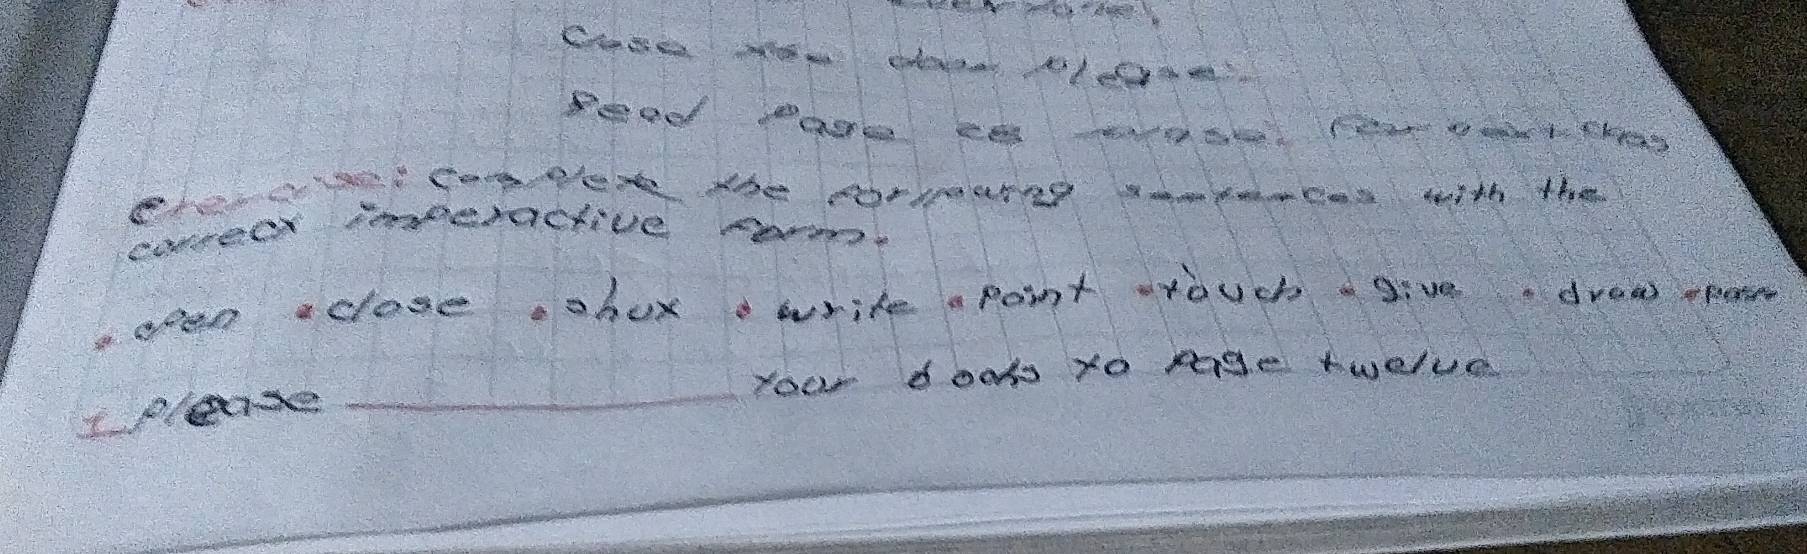 Cose the door please.
Read Page
exercise: complete the following sentences with the
correct imperactive form.
• open • close • shut • write • Point • touch • give • draw
1 please ____ your books to Page twelve